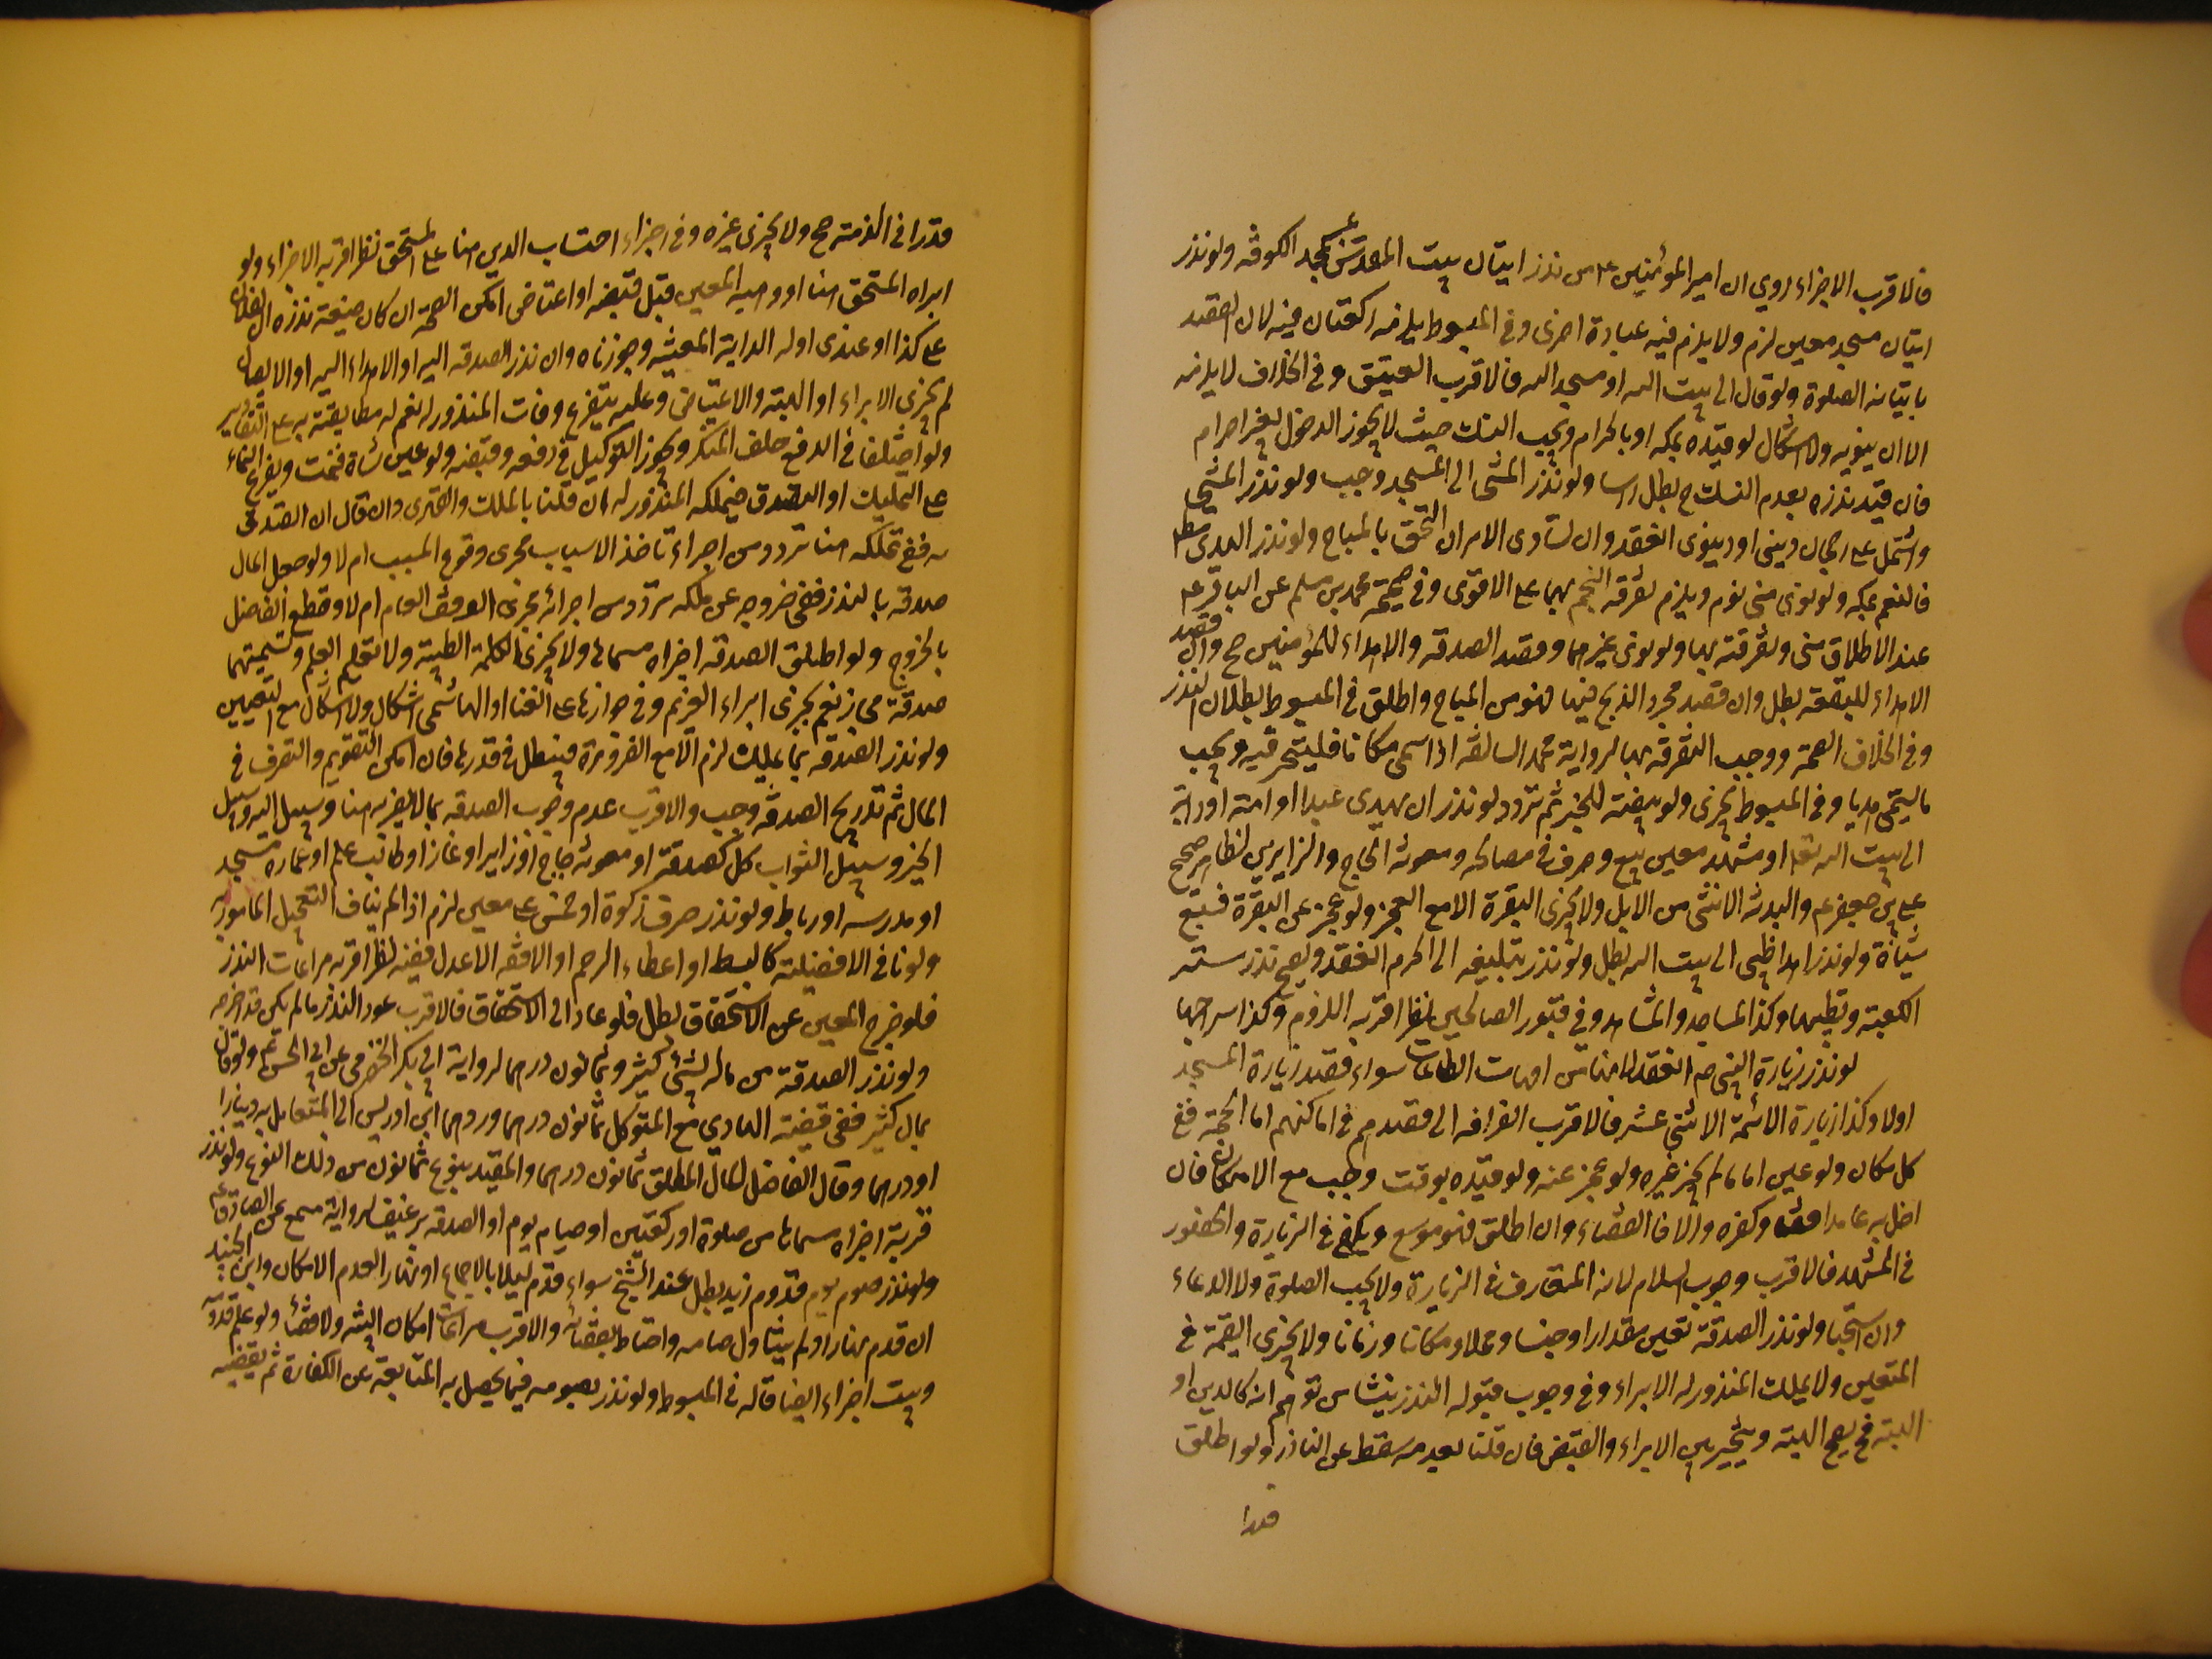 فالاقرب الاجزاء روي ان امير المؤمنين ع امر من نذر اتيان بيت المقدس بمسجد الكوفة ولو نذر
اتيان مسجد معين لزم ولا يلزم فيه عبادة اخرى وفي المبسوط يلزمه ركعتان فيه لان القصد
باتيانه الصلوة ولو قال الى بيت الله او مسجد الله فالاقرب العتيق وفي الخلاف لا يلزمه
الا ان ينويه ولا اشكال لو قيده بمكه او بالحرام ويجب النسك حيث لا يجوز الدخول بغير احرام
فان قيد نذره بعدم النسك ح بطل راسا ولو نذر المشى الى المسجد وجب ولو نذر المشي
واشتمل على رجحان ديني او دنيوى انعقد وان تساوى الامران التحق بالمباح ولو نذر الهدى مطلقا
فالنعم بمكه ولو نوى منى لزم ويلزم تفرقة اللحم بهما على الاقوى وفي صحيحة محمد بن مسلم عن الباقر ع
عند الاطلاق منى وتفرقته بها ولو نوى غيرهما وقصد الصدقه والاهداء للمؤمنين صح وان قصد
الاهداء للبقعه بطل وان قصد مجرد الذبح فيها فهو من المباح واطلق في المبسوط بطلان النذر
وفي الخلاف الصحة ووجب التفرقه بها لرواية محمد السالفه اذا سمى مكانا فلينحر فيه ويجب
ما يسمى هديا وفي المبسوط يجزى ولو بيضة للخبر ثم تردد ولو نذر ان يهدى عبدا او امة او دابة
الى بيت الله تعالى او مشهد معين بيع وصرف في مصالحه ومعونة الحاج والزايرين لظاهر صحيح
على بن جعفر ع والبدنة الانثى من الابل ولا يجزى البقرة الا مع العجز ولو عجز عن البقرة فسبع
شياة ولو نذر اهدا ظبى الى بيت الله بطل ولو نذر تبليغه الى الحرم انعقد ويصح نذر ستر
الكعبة وتطيبها وكذا المساجد والمشاهد وفي قبور الصالحين نظر اقربه اللزوم وكذا اسراجها
لو نذر زيارة النبى ص انعقد لانها من امهات الطاعات سواء قصد زيارة المسجد
اولا وكذا زيارة الائمة الاثنى عشر فالاقرب انصرافه الى قصدهم في اماكنهم اما الحجة ففي
كل مكان ولو عين اماما لم يجز غيره ولو عجز عنه ولو قيده بوقت وجب مع الامكان فان
اخل به عامدا قضا وكفره والا فالقضاء وان اطلق فهو موسع ويكفى في الزيارة والحضور
في المشهد فالاقرب وجوب السلام لانه المتعارف في الزيارة ولا يجب الصلوة ولا الدعاء
وان استحبا ولو نذر الصدقة تعين مقدارا وجنسا ومحلا ومكانا وزمانا ولا يجزى القيمة في
المتعين ولا يملك المنذور له الابراء وفي وجوب قبوله النذر ينشا من توهم انه كالدين او
الهبة فح يصح الهبة ويتخير بين الابراء والقبض فان قلنا بعدمه سقط عن الناذر ولو اطلق
قدرا
قدرا في الذمة صح ولا يجزى غيره وفي اجزاء احتساب الدين هنا على المستحق نظر اقربه الاجزاء ولو
ابراه المستحق هنا او وهبه المعين قبل قبضه او اعتاض امكن الصحة ان كان صيغة نذره ان لفلان
على كذا او عندى او له الدابة المعينه وجوزناه وان نذر الصدقه اليه او الاهداء اليه او الايصال
لم يجزى الابراء او الهبة والاعتياض وعليه يتفرع وفات المنذور له نعم له مطالبته به على التقادير
ولو اختلفا في الدفع حلف المنكر ويجوز التوكيل في دفعه وقبضه ولو عين شاة فنمت ويفرع النماء
على التمليك او التصدق فيملكه المنذور له ان قلنا بالملك والتحرى وان قال ان اتصدق
به ففي تملكه هنا تردد من اجراء تاخذ الاسباب مجرى وقوع المسبب ام لا ولو جعل المال
صدقة بالنذر ففي خروجه عن ملكه تردد من اجرائه مجرى الوقف العام ام لا وقطع الفاضل
بالخروج ولو اطلق الصدقه اجزاه مسماها ولا يجزى الكلمة الطيبة ولا تعليم العلم وتسميتهما
صدقة مجاز نعم يجزى ابراء الغريم وفي جوازها على الغنى او الهاشمى اشكال ولا اشكال مع التعيين
ولو نذر الصدقه بما يملك لزم الا مع الضرورة فيبطل في قدرها فان امكن التقويم والتصرف في
المال ثم تدريج الصدقة وجب والاقرب عدم وجوب الصدقه بما لا يضر به هنا وسبيل البر وسبيل
الخير وسبيل الثواب كل كصدقة او معونة حاج او زاير او غاز او طالب علم او عمارة مسجد
او مدرسه او رباط ولو نذر صرف زكوة او خمس على معين لزم اذا لم يناف التعجيل المامور به
ولو نافى الافضلية كالبسط او اعطاء الرحم او الافقه الاعدل ففيه نظر اقربه مراعات النذر
فلو خرج المعين عن الاستحقاق بطل فلو عاد الى الاستحقاق فالاقرب عود النذر ما لم يكن قد اخرجه
ولو نذر الصدقة من ماله بشئ كثير وثمانون درهما لرواية ابي بكر الحضرمى عن ابي الحسن ع ولو قال
بمال كثير ففي قضية الهادي ع مع المتوكل ثمانون درهما وردهما ابن ادريس الى المتعامل به دينارا
او درهما وقال الفاضل المال المطلق ثمانون درهما والمقيد بنوع ثمانون من ذلك النوع ولو نذر
قربة اجزاه مسماها من صلوة او ركعتين او صيام يوم او الصدقه برغيف لرواية مسمع عن الصادق ع
ولو نذر صوم يوم قدوم زيد بطل عند الشيخ سواء قدم ليلا بالاجماع او نهارا لعدم الامكان وابن الجنيد
ان قدم نهارا ولم يتناول صامه واحتاط بقضائه والاقرب مراعات امكان النية ولا قضاء ولو علم قدومه
وبيت اجزاء ايضا قاله في المبسوط ولو نذر بصومه فيما يحصل به المتابعة عن الكفارة ثم يقضيه